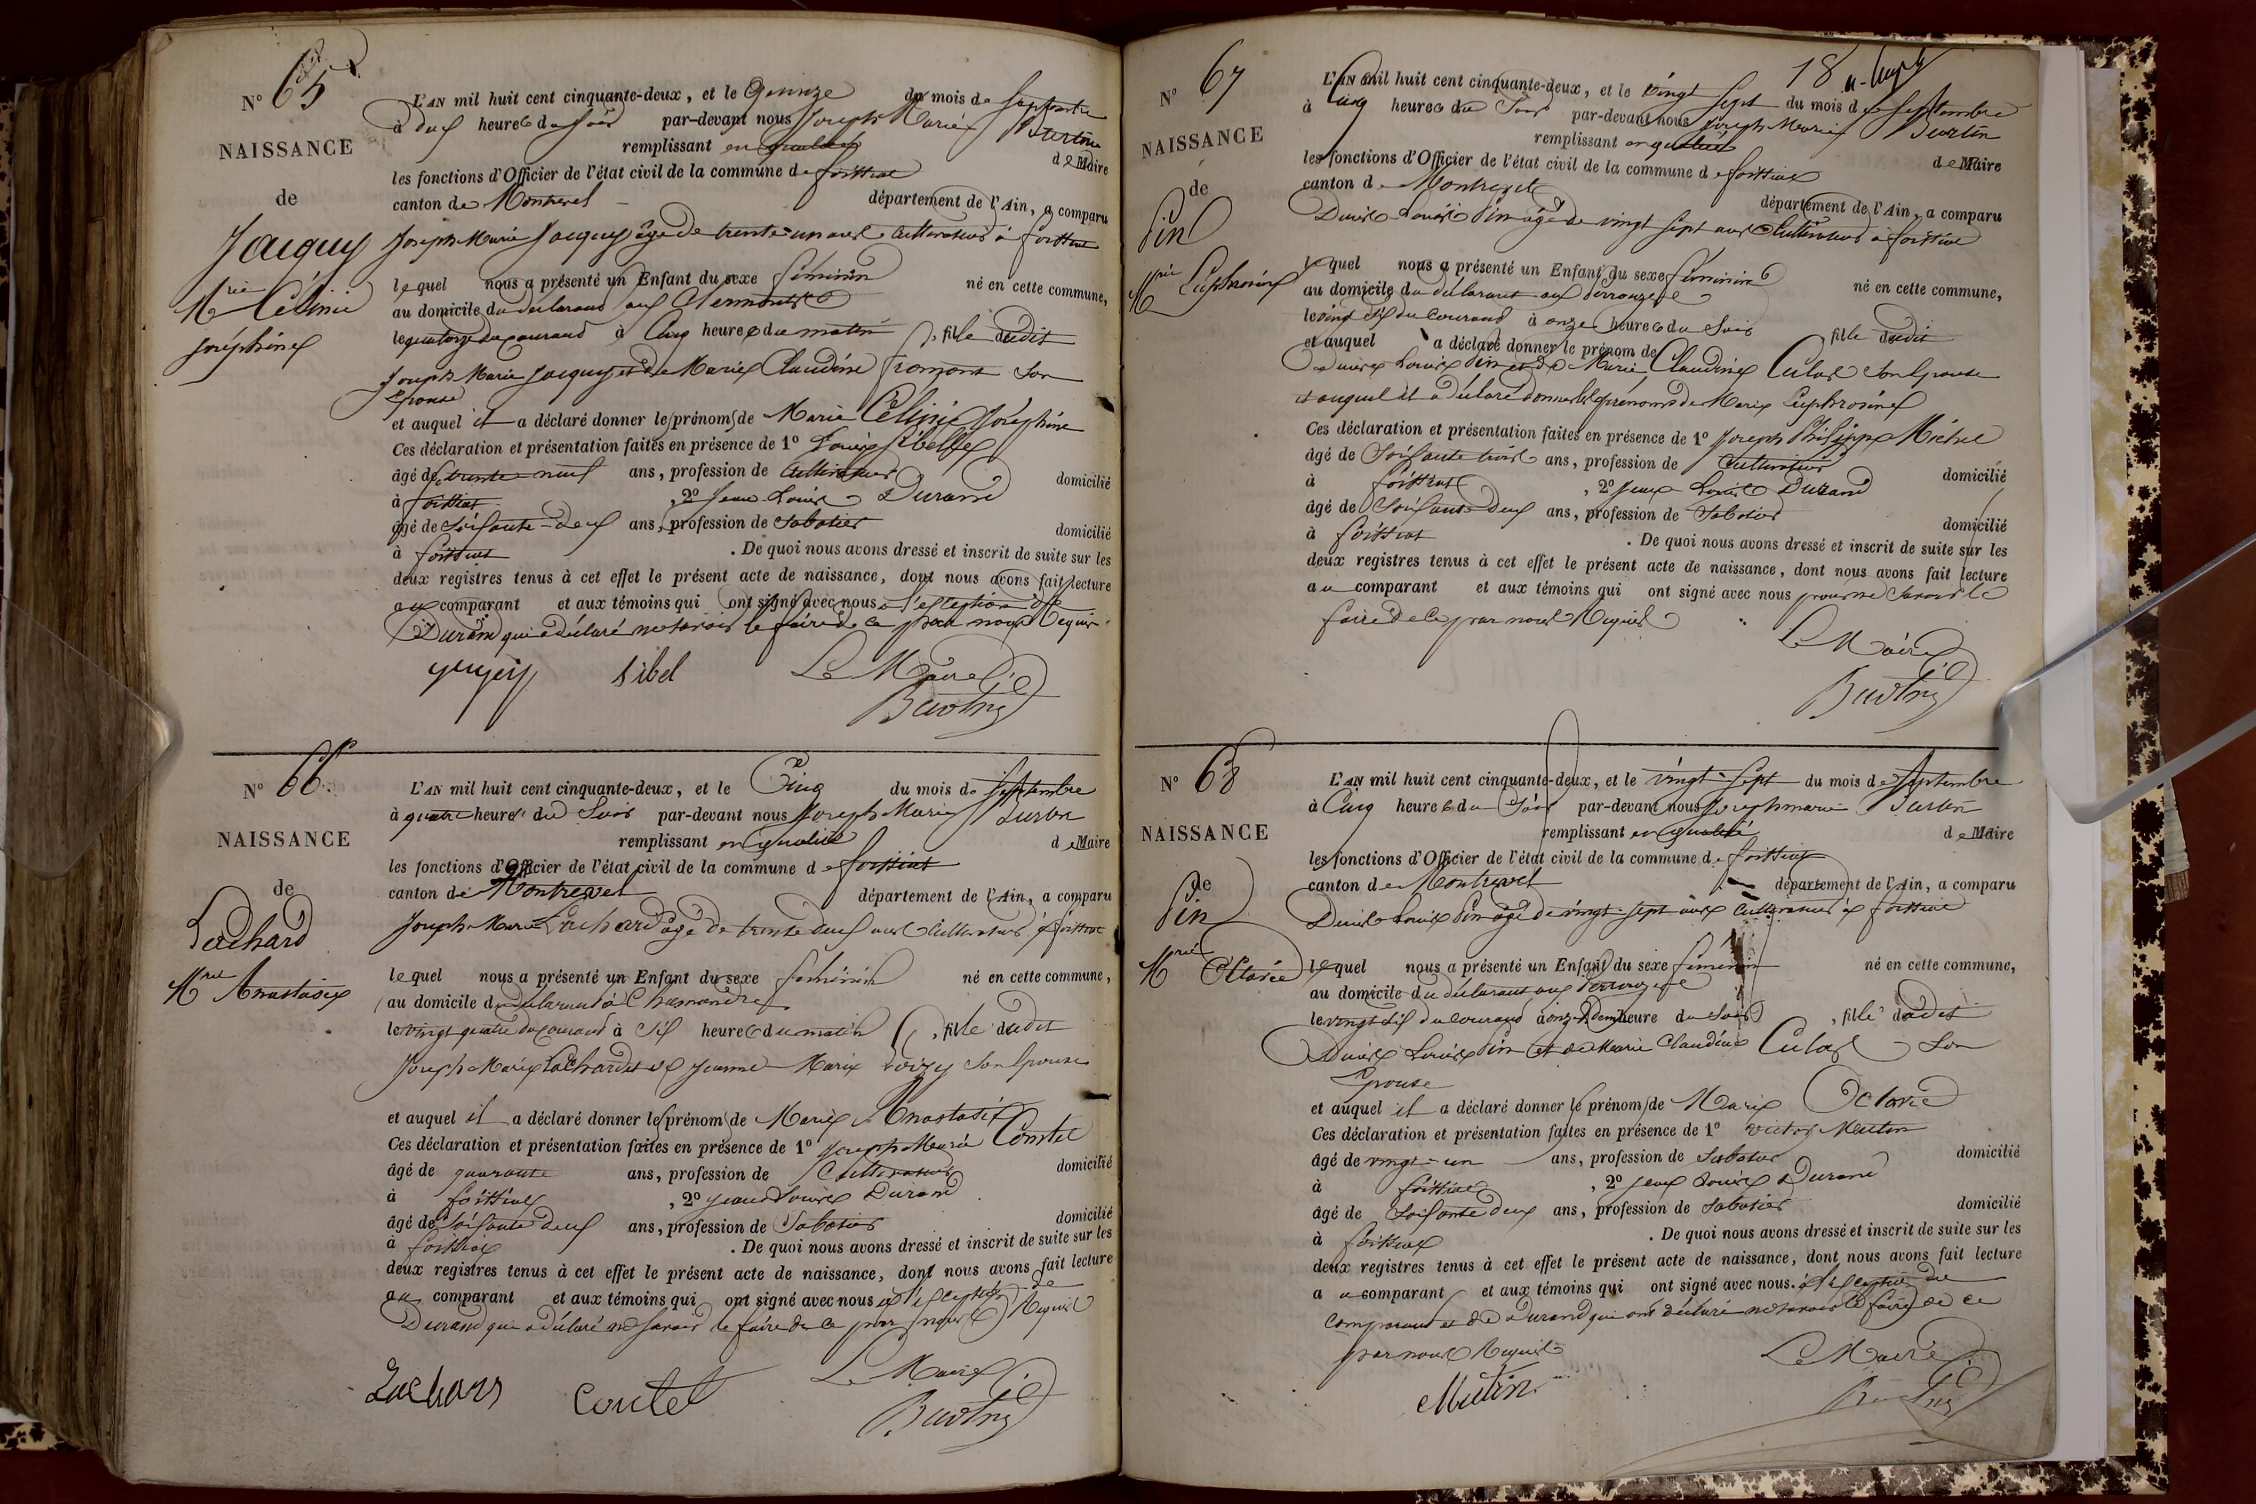 N° 65
NAISSANCE
de
Jacquy
Mrie Céline
Joséphine
L'AN mil huit cent cinquante-deux, et le Quinze du mois de Septembre
à deux heures du Soir par-devant nous Joseph Marie Burtin
remplissant en qualité de Maire
les fonctions d'Officier de l'état civil de la commune de foissiat
canton de Montrevel département de l'Ain, a comparu
Joseph Marie Jacquy âgé de trente un ans Cultivateur à foissiat
lequel nous a présenté un Enfant du sexe féminin né en cette commune,
au domicile du déclarant aux
le quatorze du courant à Cinq heures du matin, fille dudit
Joseph Marie Jacquy et de Marie Claudine fromont Son
Epouse
et auquel il a déclaré donner les prénoms de Marie Céline Joséphine
Ces déclaration et présentation faites en présence de 1° Louis
âgé de trente neuf ans, profession de Cultivateur domicilié
à foissiat, 2° Jean Louis Durand
âgé de Soixante-deux ans, profession de Sabotier domicilié
à foissiat. De quoi nous avons dressé et inscrit de suite sur les
deux registres tenus à cet effet le présent acte de naissance, dont nous avons fait lecture
aux comparant et aux témoins qui ont signé avec nous à l'exception de
Durand qui a déclaré ne savoir le faire de ce par nous Requis
Sibel Le Maire
Burtin
N° 66
NAISSANCE
de
Lachard
Mrie Anastasie
L'AN mil huit cent cinquante-deux, et le Cinq du mois de Septembre
à quatre heures du Soir par-devant nous Joseph Marie Burtin
remplissant en qualité de Maire
les fonctions d'Officier de l'état civil de la commune de foissiat
canton de Montrevel département de l'Ain, a comparu
Joseph Marie Lachard âgé de trente deux ans Cultivateur à foissiat
lequel nous a présenté un Enfant du sexe féminin né en cette commune,
au domicile du déclarant à
le vingt quatre du courant à Six heures du matin, fille dudit
Joseph Marie Lachard et de Jeanne Marie Son Epouse
et auquel il a déclaré donner les prénoms de Marie Anastasie
Ces déclaration et présentation faites en présence de 1° Joseph Marie Contet
âgé de quarante ans, profession de Cultivateur domicilié
à foissiat, 2° Jean Louis Durand
âgé de Soixante deux ans, profession de Sabotier domicilié
à foissiat. De quoi nous avons dressé et inscrit de suite sur les
deux registres tenus à cet effet le présent acte de naissance, dont nous avons fait lecture
au comparant et aux témoins qui ont signé avec nous à l'exception de
Durand qui a déclaré ne savoir le faire de ce par nous Requis
Lachard Contet Le Maire
Burtin
18
N° 67
NAISSANCE
de
Pin
Mrie Euphrosine
L'AN mil huit cent cinquante-deux, et le vingt Sept du mois de Septembre
à Cinq heures du Soir par-devant nous Joseph Marie Burtin
remplissant en qualité de Maire
les fonctions d'Officier de l'état civil de la commune de foissiat
canton de Montrevel département de l'Ain, a comparu
Denis Louis Pin âgé de vingt sept ans Cultivateur à foissiat
lequel nous a présenté un Enfant du sexe féminin né en cette commune,
au domicile du déclarant aux
le vingt six du courant à onze heures du Soir, fille dudit
et auquel a déclaré donner le prénom de
Denis Louis Pin et de Marie Claudine Son Epouse
et auquel il a déclaré donner les prénoms de Marie Euphrosine
Ces déclaration et présentation faites en présence de 1° Joseph Philippe Michel
âgé de Soixante trois ans, profession de Cultivateur domicilié
à foissiat, 2° Jean Louis Durand
âgé de Soixante Deux ans, profession de Sabotier domicilié
à foissiat. De quoi nous avons dressé et inscrit de suite sur les
deux registres tenus à cet effet le présent acte de naissance, dont nous avons fait lecture
au comparant et aux témoins qui ont signé avec nous pour ne Savoir le
faire de ce par nous Requis
Le Maire
Burtin
N° 68
NAISSANCE
de
Pin
Mrie Octavie
L'AN mil huit cent cinquante-deux, et le vingt-Sept du mois de Septembre
à Cinq heures du Soir par-devant nous Joseph marie Burtin
remplissant en qualité de Maire
les fonctions d'Officier de l'état civil de la commune de foissiat
canton de Montrevel département de l'Ain, a comparu
Denis Louis Pin âgé de vingt-sept ans Cultivateur à foissiat
lequel nous a présenté un Enfant du sexe féminin né en cette commune,
au domicile du déclarant aux
le vingt six du courant à onze h demi heure du Soir, fille dudit
Denis Louis Pin et de Marie Claudine Son
Epouse
et auquel il a déclaré donner le prénom de Marie Octavie
Ces déclaration et présentation faites en présence de 1° victor Mutin
âgé de vingt-un ans, profession de Sabotier domicilié
à foissiat, 2° Jean Louis Durand
âgé de Soixante deux ans, profession de Sabotier domicilié
à foissiat. De quoi nous avons dressé et inscrit de suite sur les
deux registres tenus à cet effet le présent acte de naissance, dont nous avons fait lecture
au comparant et aux témoins qui ont signé avec nous à l'exception du
comparant et de Durand qui ont déclaré ne savoir le faire de ce
par nous Requis Le Maire
Mutin Burtin